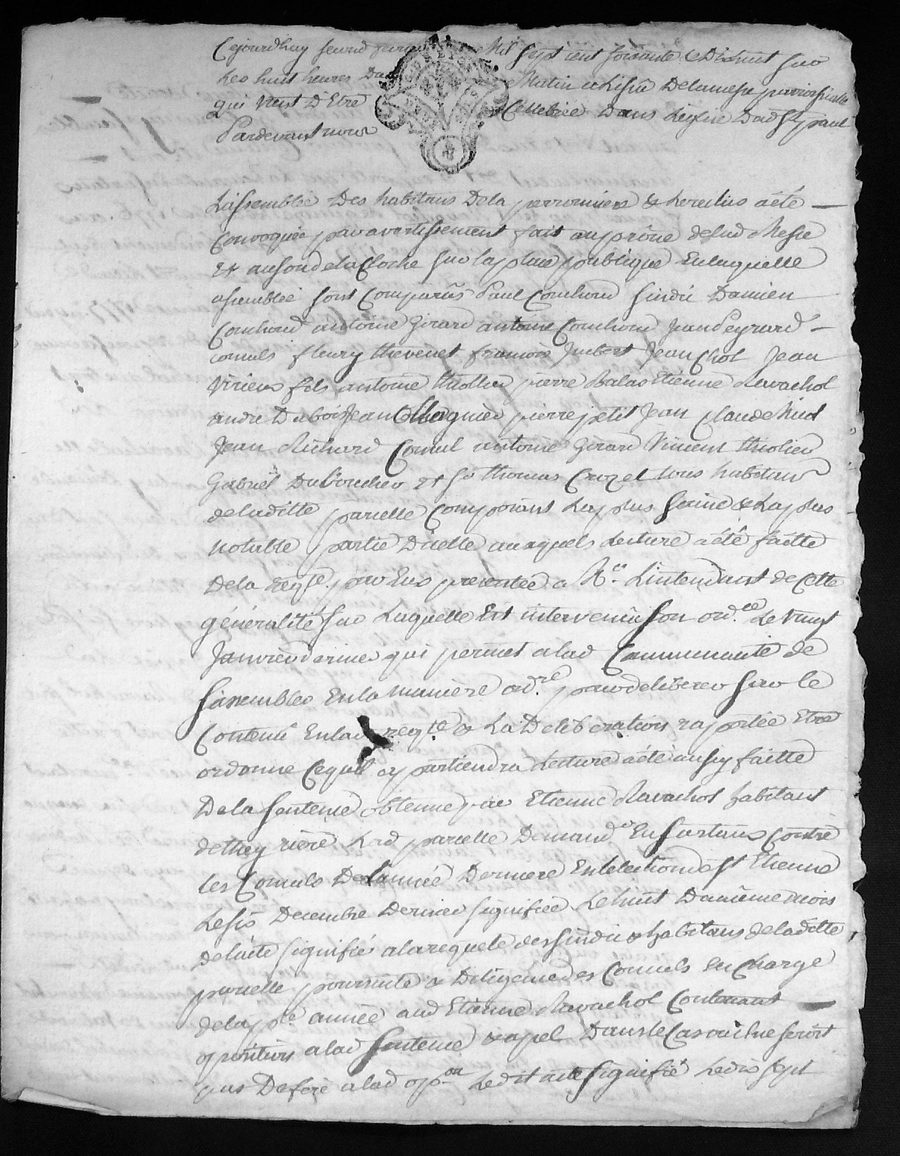 Cejourdhuy second Mil sept cent soixante & Dixhuit sur
Les huit heures Du Matin a lissüe Delamesse parroissialle
qui Vient D'Etre Cellebrée Dans Leglise Dud st paul
Pardevant nous
Lassemblée Des habitans Dela perronniere & a été
Convoquée par avertissement fait au prône deladte Messe
Et au son delaCloche sur la place publique En laquelle
assemblée sont Comparûs Paul Couchoud sindic Damien
Couchoud antoine Girard antoine Couchoud Jean Peyrard
consuls fleury thevenet francois Jmbert Jean Chol Jean
Virieux fils antoine thollier pierre Balas Etienne Ravachol
andré Dubois Jean pierre petit Jean Claude
Jean Richard Consul antoine Girard Vincent thiolier
Gabriel Dubouchet & Sr thomas Crozet tous habitans
de laditte parcelle Composant La plus saine & La plus
Notable partie Dicelle auxquels lecture a été faitte
De la reqte. par Eux presentée a Mr. Lintendant de Cette
généralité sur Laquelle Est intervenü son ordce Le Vingt
Janvier dernier qui permet a lad Communauté de
sassembler En la maniere ordre pour deliberer sur le
Contenü En lad reqte & La Deliberation raportée Etre
ordonné Ce quil apartiendra Lecture a été aussy faitte
De la sentence obtenue par Etienne Ravachol habitant
de riere Lad parcelle Demandr En surtaux Contre
les Consuls De Lannée Derniere En lelection de st Etienne
Le six Decembre Dernier signifiée Le huit Dumême mois
de lacte signiffié a la requete des sindic & habitans de laditte
parcelle poursuite & Diligence des Consuls En Charge
de la pte année aud Etienne Ravachol Contenant
oposition a lad sentence & apel Dans le Cas ou il ne seroit
pas Deferé a lad opon Ledit acte signiffié Le dix sept